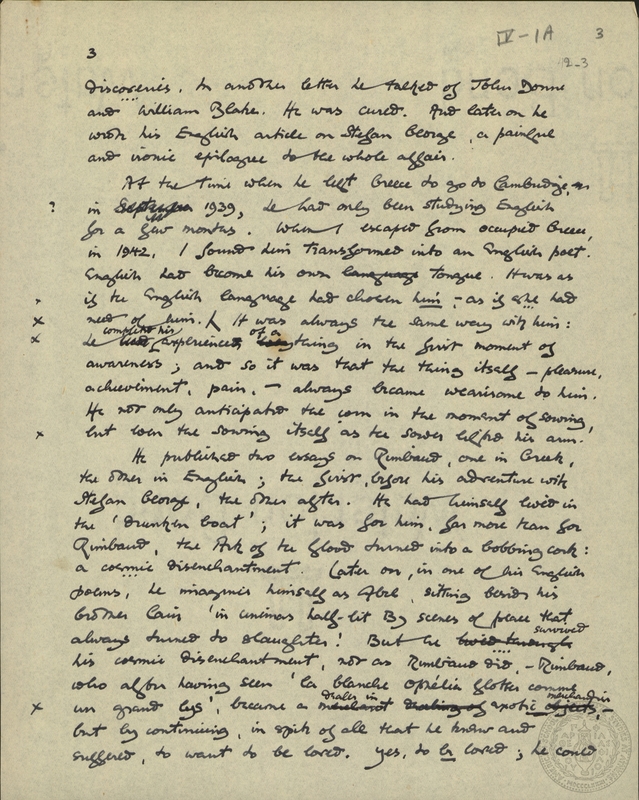 IV-1A 3
42-3
3
discoveries. In another letter he talked of John Donne
and William Blake. He was cured. And later on he
wrote his English article on Stefan George, a painful
and ironic epilogue to the whole affair.
At the time when he left Greece to go to Cambridge,
? in September 1939, he had only been studying English
for a few months. When I escaped from occupied Greece,
in 1942, I found him transformed into an English poet.
English had become his own language tongue. It was as
if the English language had chosen him - as if she had
x need of him. It was always the same way with him:
completed his of a
x he had experienced thing in the first moment of
awareness; and so it was that the thing itself - pleasure,
achievement, pain, - always became wearisome to him.
He not only anticipated the corn in the moment of sowing,
x but even the sowing itself as the sower lifted his arm.
He published two essays on Rimbaud, one in Greek,
the other in English; the first, before his adventure with
Stefan George, the other after. He had himself lived in
the 'drunken boat'; it was for him, far more than for
Rimbaud, the Ark of the flood turned into a bobbing cork:
a cosmic disenchantment. Later on, in one of his English
poems, he imagines himself as Abel, sitting beside his
brother Cain 'in cinemas half-lit By scenes of peace that
always turned to slaughter'. But he lived through survived
his cosmic disenchantment, not as Rimbaud did, - Rimbaud,
who after having seen 'la blanche Ophélia flotter comme
dealer in merchandise
x un grand lys', became a merchant dealing of exotic objects, -
but by continuing, in spite of all that he knew and
suffered, to want to be loved. Yes, to be loved; he could